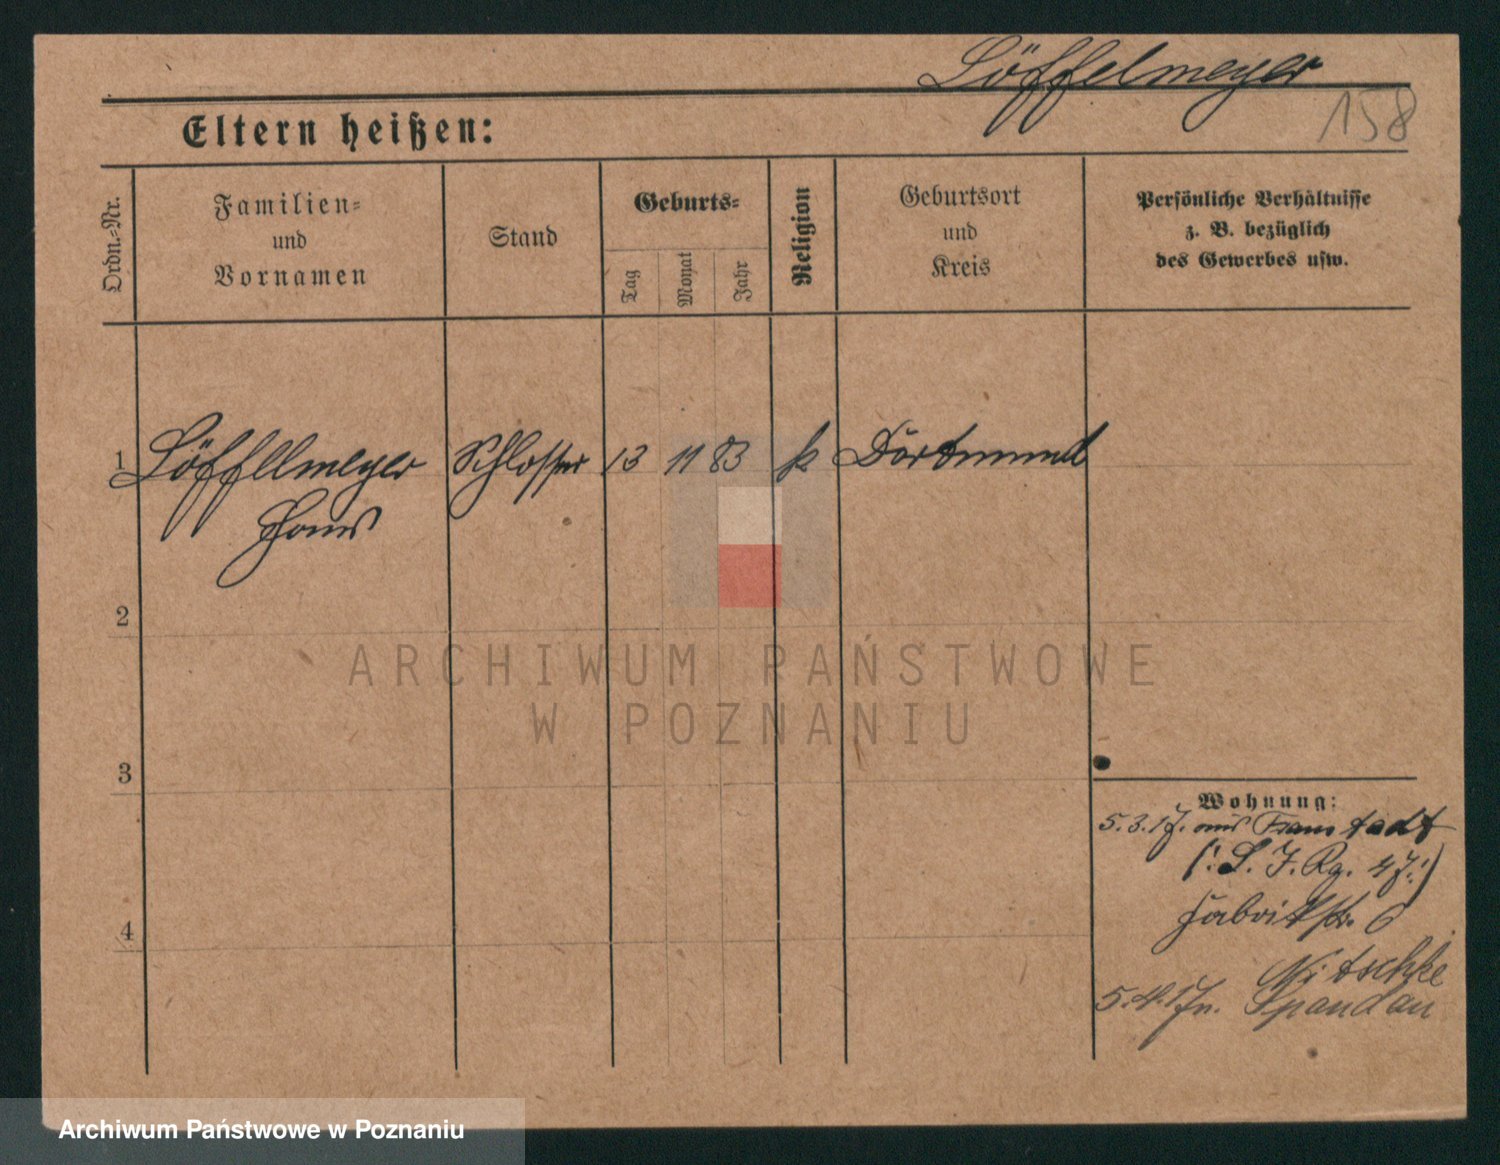 Löffelmeyer
158
Eltern heißen:
Ordn.-Nr.
Familien-
und
Vornamen
Stand
Geburts-
Tag
Monat
Jahr
Religion
Geburtsort
und
Kreis
Persönliche Verhältnisse
z. B. bezüglich
des Gewerbes usw.
1 Löffellmeyer Schlosser 13 11 83 k Dortmund
Hans
2
3
4
Wohnung:
5.3.17. aus Fraustadt
(: L. J. Rg. 47:)
Fabrikstr. 6
Nitschke
5.4.17 n. Spandau
ARCHIWUM PAŃSTWOWE
W POZNANIU
Archiwum Państwowe w Poznaniu